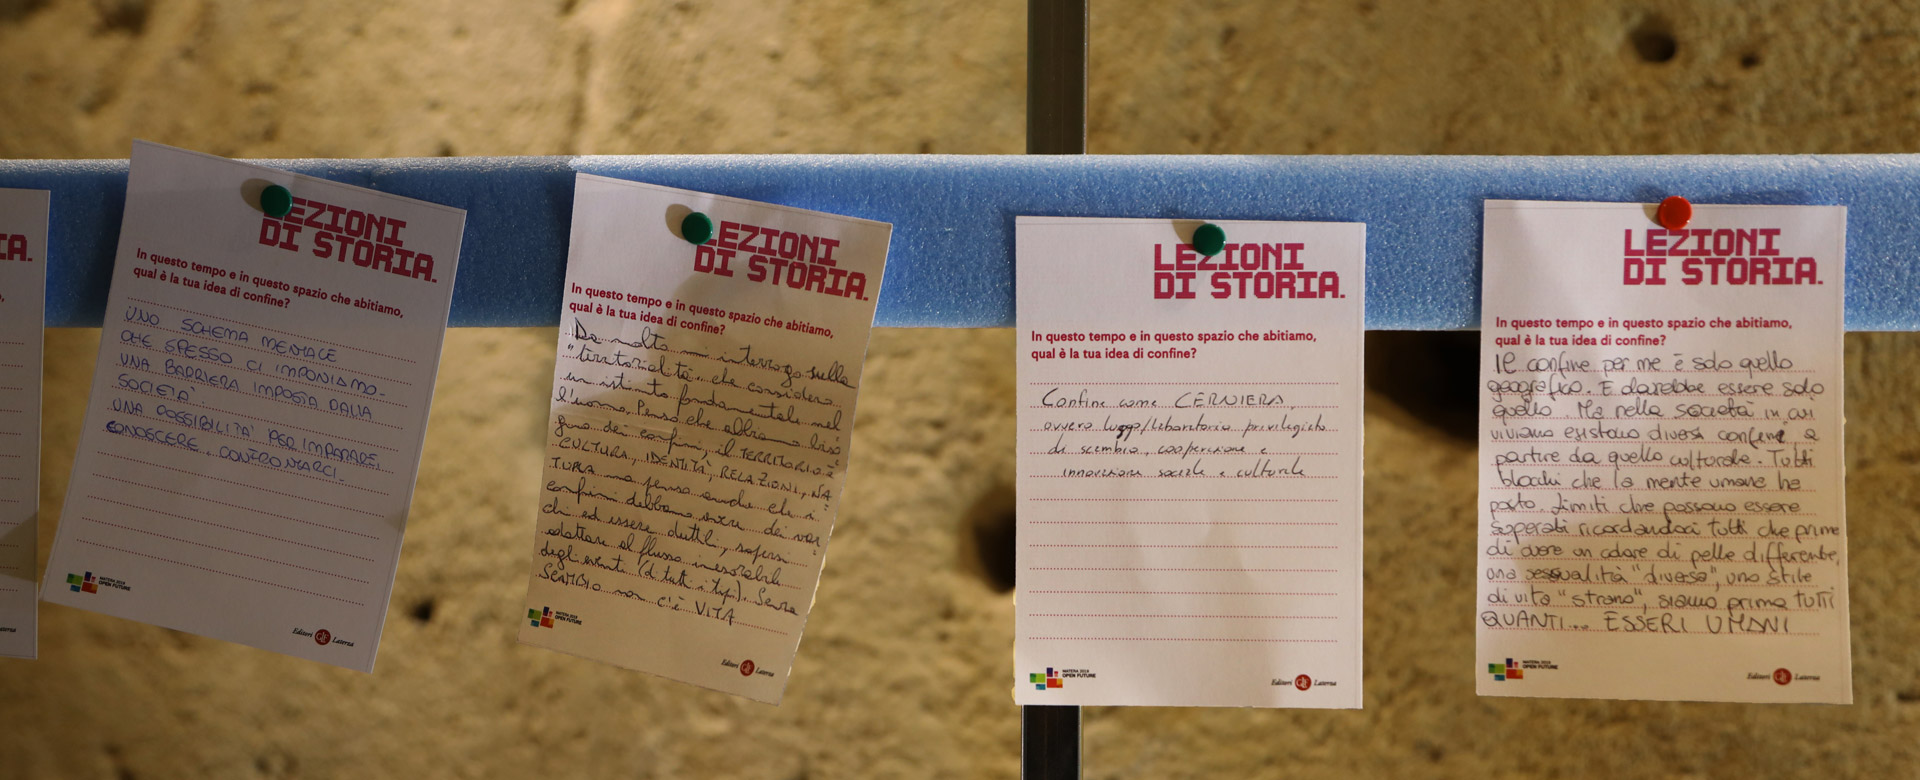 A.
LEZIONI
DI STORIA.
In questo tempo e in questo spazio che abitiamo,
qual è la tua idea di confine?
UNO SCHEMA MENTALE
CHE SPESSO CI IMPONIAMO.
UNA BARRIERA IMPOSTA DALLA
SOCIETÀ.
UNA POSSIBILITÀ PER IMPARARE,
CONOSCERE, CONFRONTARCI.
MATERA 2019
OPEN FUTURE
Editori Laterza
LEZIONI
DI STORIA.
In questo tempo e in questo spazio che abitiamo,
qual è la tua idea di confine?
Da molto mi interrogo sulla
"territorialità" che considero
un istinto fondamentale nel
l'uomo. Penso che abbiamo biso
gno dei confini, il TERRITORIO è
CULTURA, IDENTITÀ, RELAZIONI, NA
TURA ma penso anche che i
confini debbano avere dei var
chi ed essere duttili, sapersi
adattare al flusso inesorabile
degli eventi (di tutti i tipi). Senza
SCAMBIO non c'è VITA
MATERA 2019
OPEN FUTURE
Editori Laterza
LEZIONI
DI STORIA.
In questo tempo e in questo spazio che abitiamo,
qual è la tua idea di confine?
Confine come CERNIERA,
ovvero luogo/laboratorio privilegiato
di scambio, cooperazione e
innovazione sociale e culturale
MATERA 2019
OPEN FUTURE
Editori Laterza
LEZIONI
DI STORIA.
In questo tempo e in questo spazio che abitiamo,
qual è la tua idea di confine?
Il confine per me è solo quello
geografico. E dovrebbe essere solo
quello. Ma nella società in cui
viviamo esistono diversi confini, a
partire da quello culturale. Tutti
blocchi che la mente umana ha
posto. Limiti che possono essere
superati ricordandoci tutti che prima
di avere un colore di pelle differente,
una sessualità "diversa", uno stile
di vita "strano", siamo prima TUTTI
QUANTI... ESSERI UMANI
MATERA 2019
OPEN FUTURE
Editori Laterza